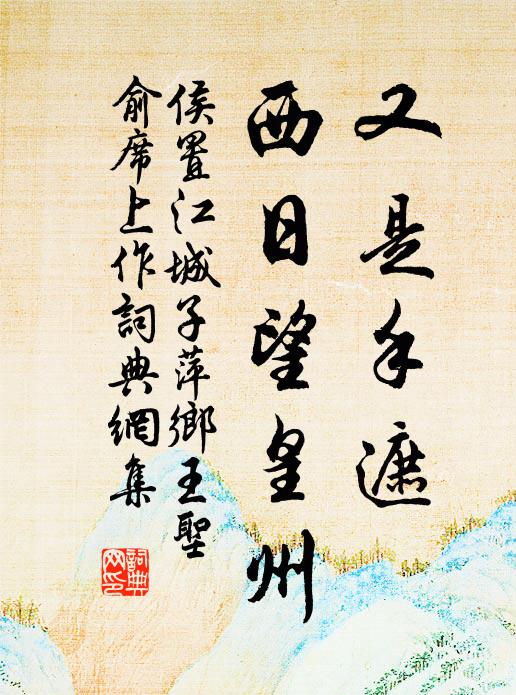 又是手遮
西日望皇州
侯置江城子萍鄉王聖
俞席上作詞典網集
詞典
网印